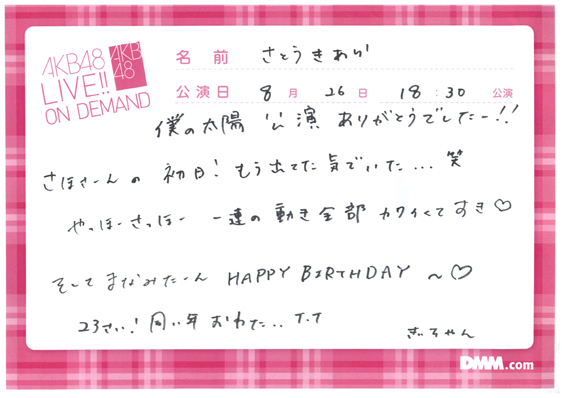 AKB48
LIVE!!
ON DEMAND
AKB
48
名前 さとうきあら
公演日 8月 26日 18:30 公演
僕の太陽 公演 ありがとうでしたー!!
さほさーんの 初日! もう出てた気でいた... 笑
やっほーさっほー 一連の動き全部 カワイくてすき♡
そして まなみたーん HAPPY BIRTHDAY ～♡
23さい! 同い年 おわた.. T.T
ぎちゃん
DMM.com